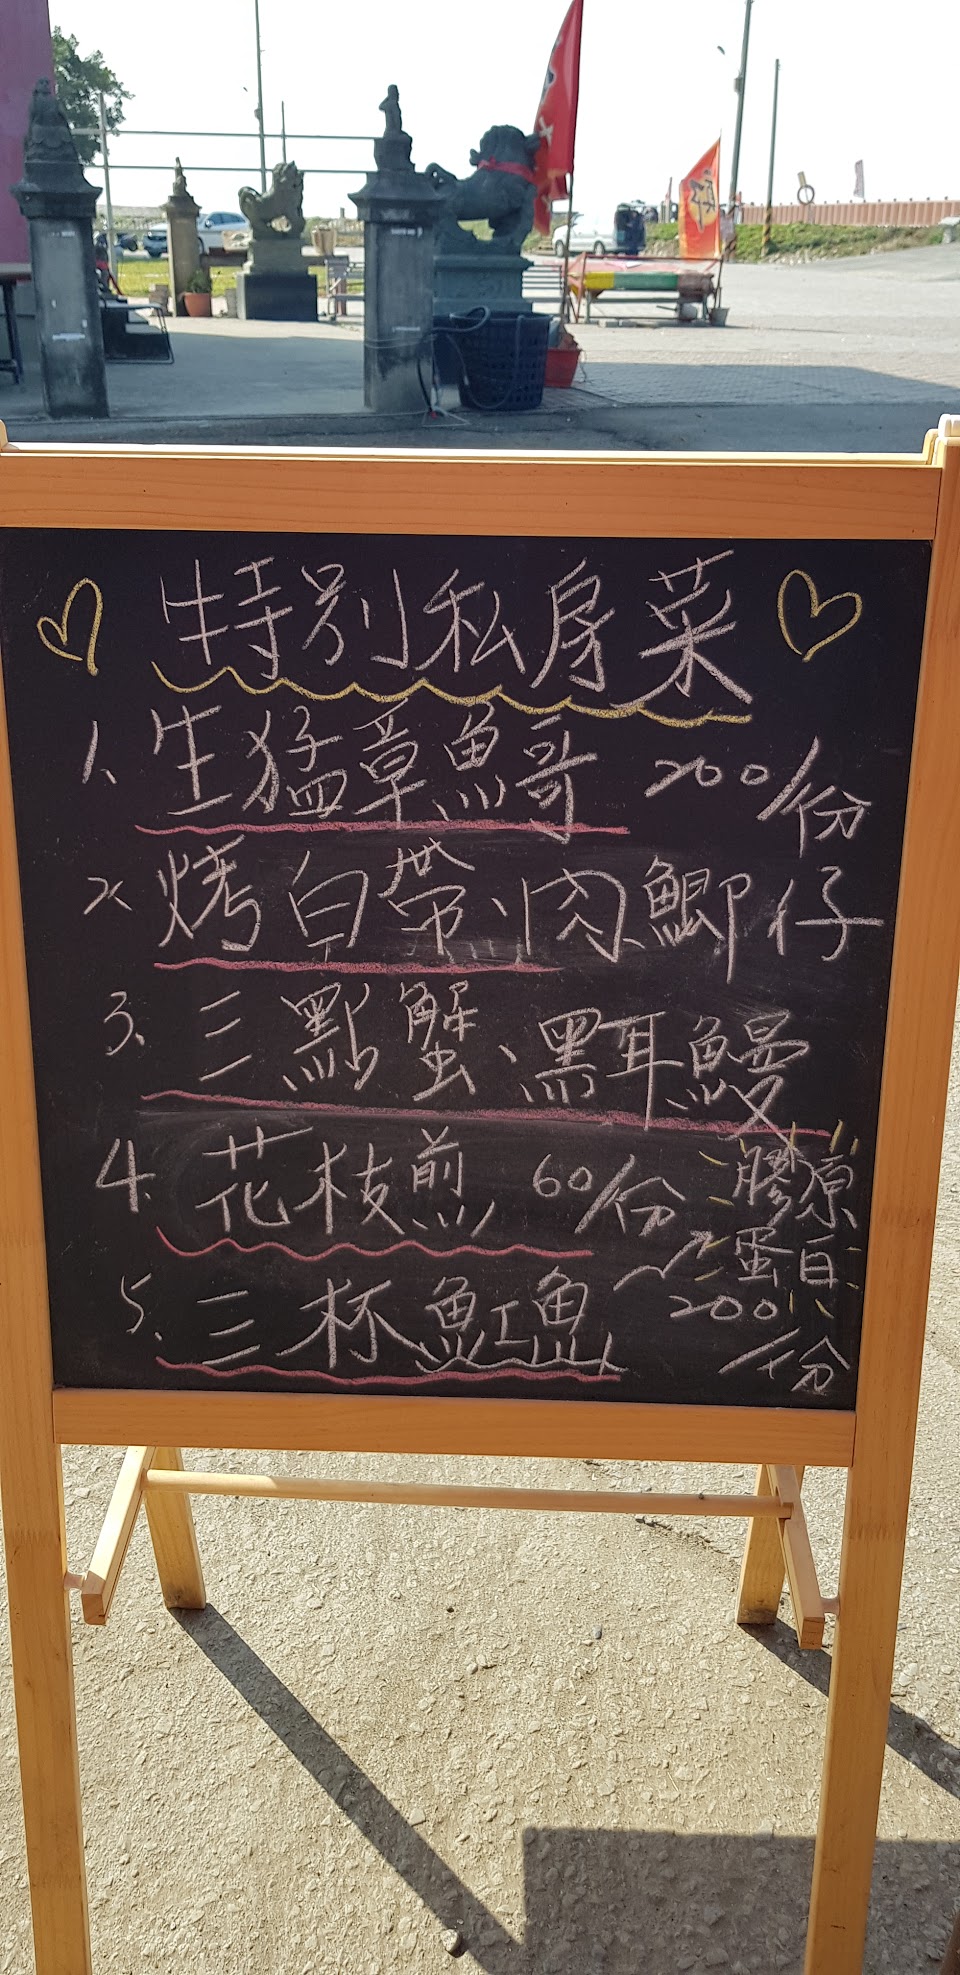 特別私房菜
1. 生猛章魚哥 200/份
2. 烤白帶、肉鯽仔
3. 三點蟹、黑耳鰻
4. 花枝煎 60/份
5. 三杯魟魚 膠原蛋白
200/份